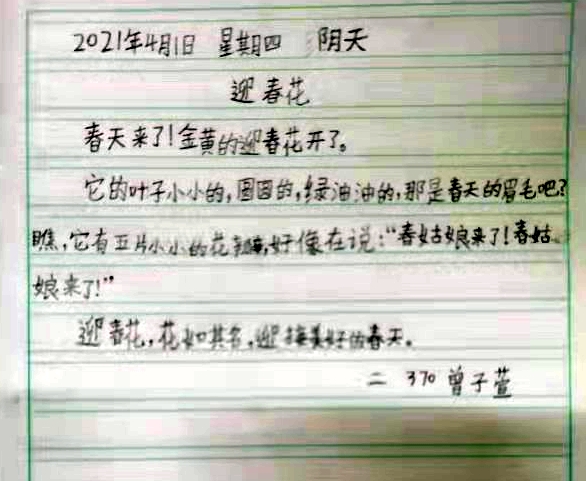 2021年4月1日 星期四 阴天
迎春花
春天来了!金黄的迎春花开了。
它的叶子小小的,圆圆的,绿油油的,那是春天的眉毛吧?
瞧,它有五片小小的花瓣,好像在说:“春姑娘来了!春姑
娘来了!”
迎春花,花如其名,迎接美好的春天。
二 370 曾子萱